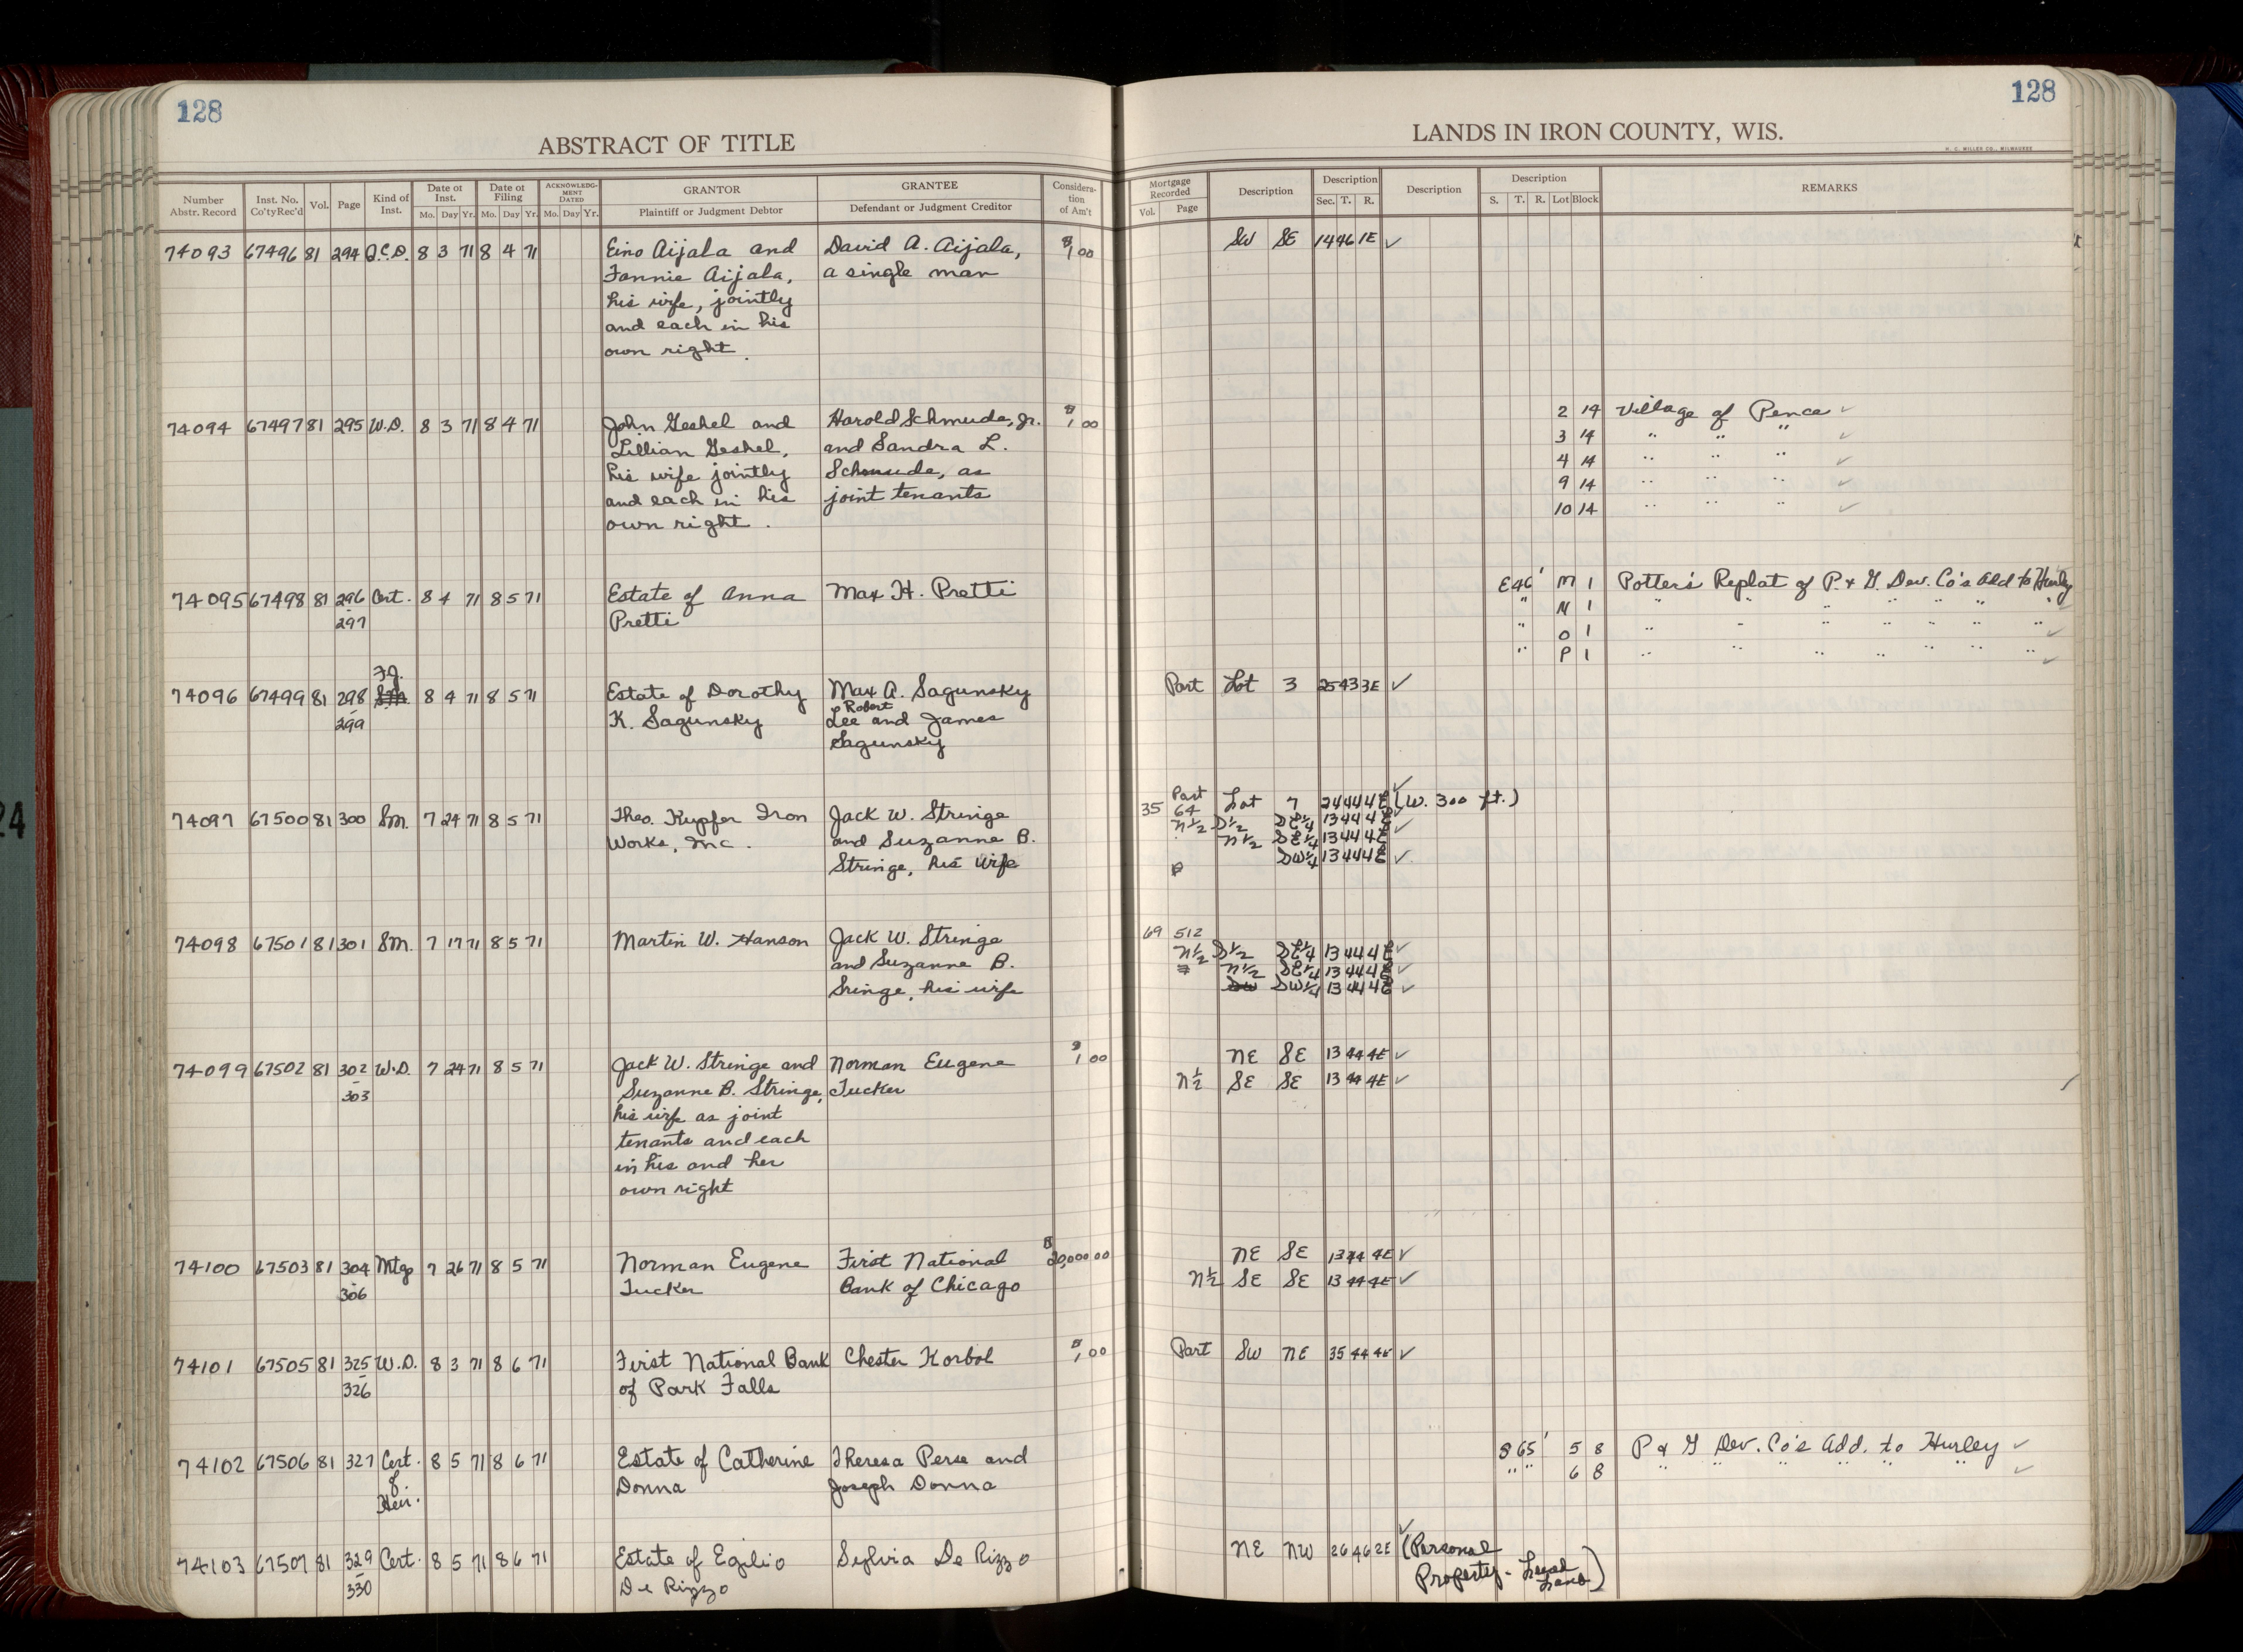 128
128
ABSTRACT OF TITLE
LANDS IN IRON COUNTY, WIS.
H. C. MILLER CO., MILWAUKEE
Number Abstr. Record | Inst. No. Co'tyRec'd | Vol. | Page | Kind of Inst. | Date of Inst. Mo. Day Yr. | Date of Filing Mo. Day Yr. | ACKNOWLEDG-MENT DATED Mo. Day Yr. | GRANTOR Plaintiff or Judgment Debtor | GRANTEE Defendant or Judgment Creditor | Considera-tion of Am't | Mortgage Recorded Vol. Page | Description | Description Sec. T. R. | Description | Description S. T. R. Lot Block | REMARKS
74093 67496 81 294 Q.C.D. 8 3 71 8 4 71 Eino Aijala and David A. Aijala, $1 00 SW SE 14 46 1E ✓
Fannie Aijala, a single man
his wife, jointly
and each in his
own right.
74094 67497 81 295 W.D. 8 3 71 8 4 71 John Geshel and Harold Schmude, Jr. $1 00 2 14 Village of Pence ✓
Lillian Geshel, and Sandra L. 3 14 " " " ✓
his wife jointly Schmude, as 4 14 " " " ✓
and each in his joint tenants 9 14 " " " ✓
own right. 10 14 " " " ✓
74095 67498 81 296 Cert. 8 4 71 8 5 71 Estate of Anna Max H. Pretti E46' M 1 Potter's Replat of P. & G. Dev. Co's Add to Hurley
- 297 Pretti " N 1 " " " " " " " ✓
" O 1 " " " " " " " ✓
" P 1 " " " " " " " ✓
F.J.
74096 67499 81 298 S.M. 8 4 71 8 5 71 Estate of Dorothy Max A. Sagunsky Part Lot 3 25 43 3E ✓
- 299 K. Sagunsky Robert
Lee and James
Sagunsky
74097 67500 81 300 Sm. 7 24 71 8 5 71 Theo. Kupfer Iron Jack W. Stringe 35 64 Part Lot 7 24 44 4E (W. 300 ft.) ✓
Works, Inc. and Suzanne B. N½ S½ SE¼ 13 44 4E ✓
Stringe, his wife N½ SE¼ 13 44 4E
SW¼ 13 44 4E ✓
74098 67501 81 301 Sm. 7 17 71 8 5 71 Martin W. Hanson Jack W. Stringe 69 512
and Suzanne B. N½ S½ SE¼ 13 44 4E ✓
Sringe, his wife N½ SE¼ 13 44 4E ✓
SW SW¼ 13 44 4E ✓
74099 67502 81 302 W.D. 7 24 71 8 5 71 Jack W. Stringe and Norman Eugene $1 00 NE SE 13 44 4E ✓
- 303 Suzanne B. Stringe, Tucker N½ SE SE 13 44 4E ✓
his wife as joint
tenants and each
in his and her
own right
74100 67503 81 304 Mtge 7 26 71 8 5 71 Norman Eugene First National $20,000 00 NE SE 13 44 4E ✓
- 306 Tucker Bank of Chicago N½ SE SE 13 44 4E ✓
74101 67505 81 325 W.D. 8 3 71 8 6 71 First National Bank Chester Korbol $1,00 Part SW NE 35 44 4E ✓
- 326 of Park Falls
74102 67506 81 327 Cert. 8 5 71 8 6 71 Estate of Catherine Theresa Perse and S 65' 5 8 P & G Dev. Co's Add. to Hurley ✓
of Donna Joseph Donna " " 6 8 " " " " " " ✓
Heir.
74103 67507 81 329 Cert. 8 5 71 8 6 71 Estate of Egilio Sylvia De Rizzo NE NW 26 46 2E ✓ (Personal
- 330 De Rizzo Property -
24